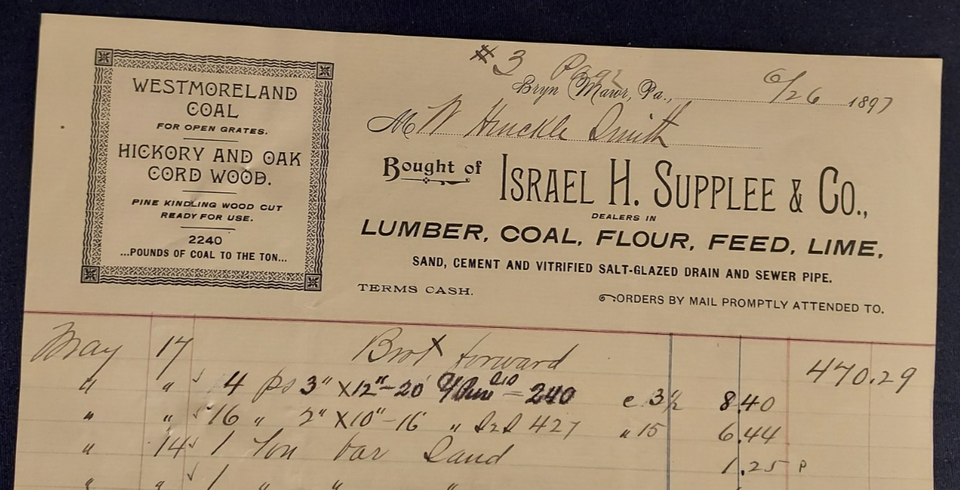 WESTMORELAND
COAL
FOR OPEN GRATES.
HICKORY AND OAK
CORD WOOD.
PINE KINDLING WOOD CUT
READY FOR USE.
2240
...POUNDS OF COAL TO THE TON...
#3 Page
Bryn Mawr, Pa., 6/26 1897
M W Hinckle Smith
Bought of ISRAEL H. SUPPLEE & CO.,
DEALERS IN
LUMBER, COAL, FLOUR, FEED, LIME,
SAND, CEMENT AND VITRIFIED SALT-GLAZED DRAIN AND SEWER PIPE.
TERMS CASH. ORDERS BY MAIL PROMPTLY ATTENDED TO.
May 17 Brot forward 470.29
" " 4 ps 3" X 12"-20' 240 3½ 8.40
" " 16 " 2" X 10"-16' " 427 " 15 6.44
" 14 1 Ton bar Sand 1.25
" " 1 " " "